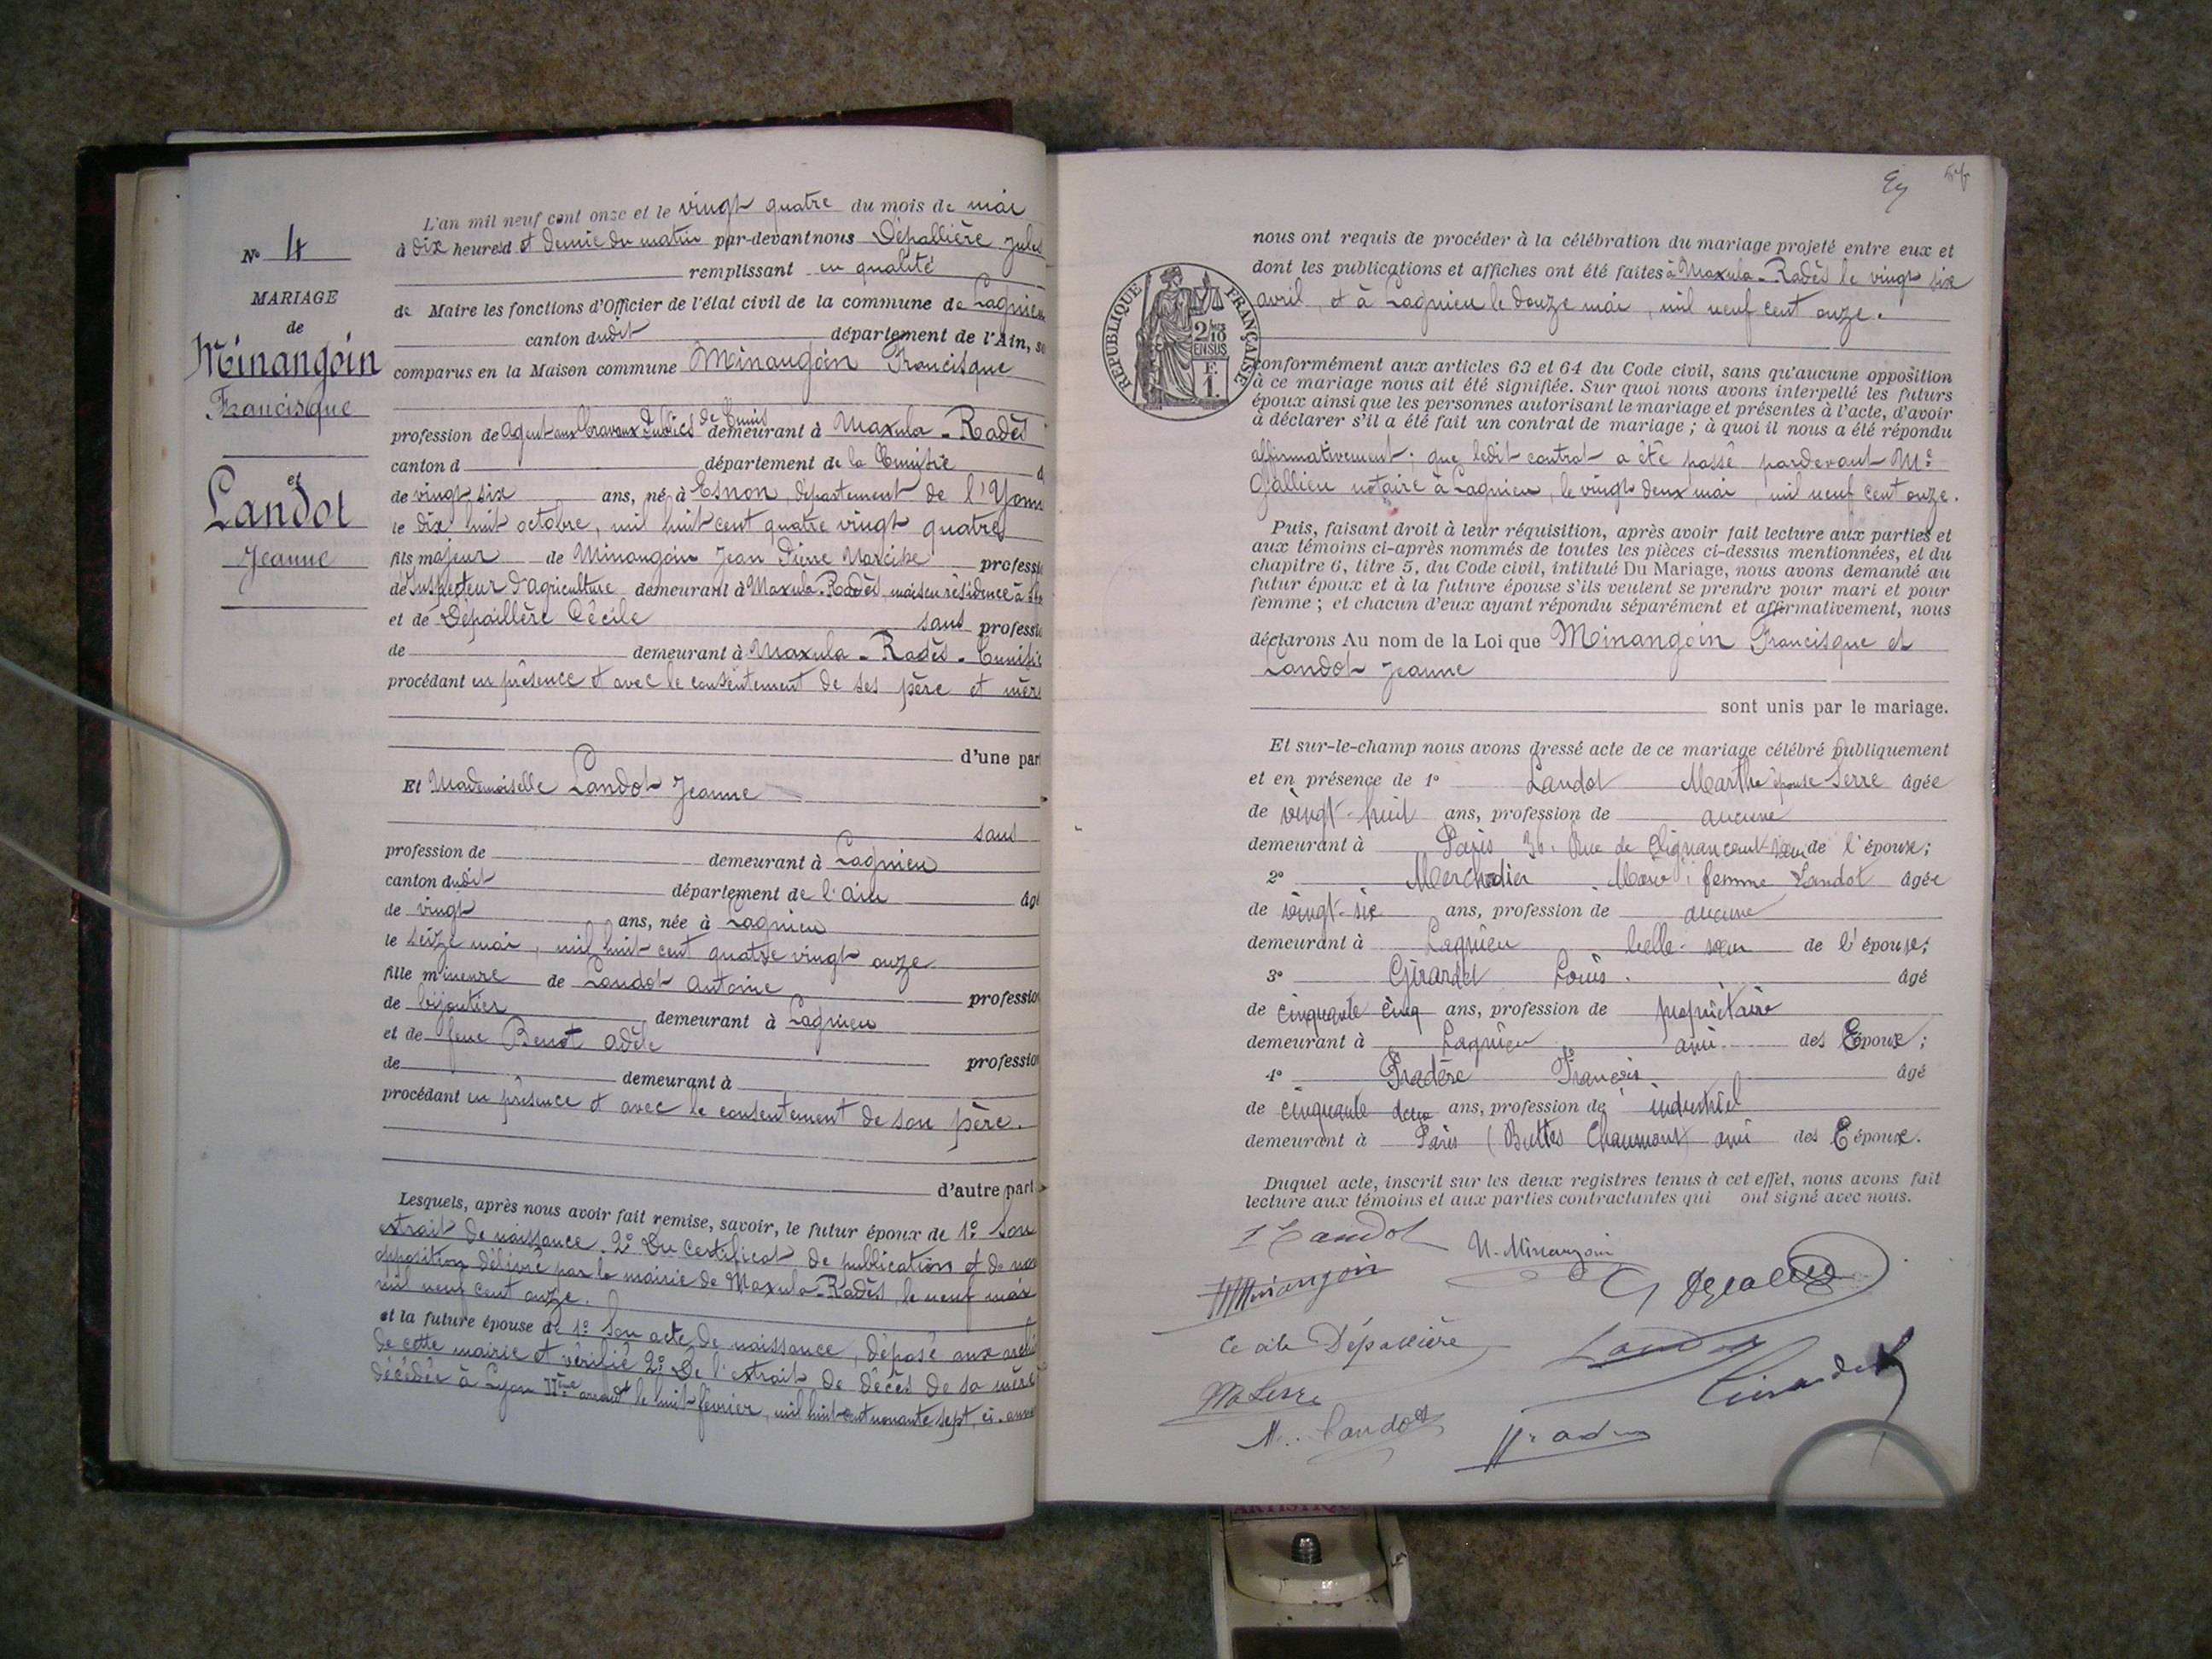 N° 4
MARIAGE
de
Minangoin
Francisque
et
Landot
Jeanne
L'an mil neuf cent onze et le vingt quatre du mois de mai
à dix heures et demie du matin par-devant nous Dépallière Jules
remplissant en qualité
de Maire les fonctions d'Officier de l'état civil de la commune de Lagnieu
canton dudit département de l'Ain, so
comparus en la Maison commune Minangoin Francisque
profession de agent aux travaux Publics de Tunis demeurant à Maxula-Radès
canton d département de la Tunisie
de vingt six ans, né à Esnon, département de l'Yonn
le dix huit octobre, mil huit cent quatre vingt quatre
fils majeur de Minangoin Jean Pierre Narcisse professi
de Inspecteur d'agriculture demeurant à Maxula-Radès, mais en résidence à
et de Dépaillère Cécile sans professi
de demeurant à Maxula-Radès-Tunisie
procédant en présence et avec le consentement de ses père et mère
d'une part
Et Mademoiselle Landot Jeanne
sans
profession de demeurant à Lagnieu
canton dudit département de l'ain âgé
de vingt ans, née à Lagnieu
le seize mai, mil huit cent quatre vingt onze
fille mineure de Landot Antoine professio
de bijoutier demeurant à Lagnieu
et de feue Benot Adèle professio
de demeurant à
procédant en présence et avec le consentement de son père.
d'autre part
Lesquels, après nous avoir fait remise, savoir, le futur époux de 1° Son
extrait de naissance. 2° Du Certificat de publication et de non
opposition délivré par la mairie de Maxula-Radès, le neuf mai
mil neuf cent onze.
et la future épouse de 1° Son acte de naissance, déposé aux archi
de cette mairie et vérifié 2° De l'extrait de décès de sa mère
décédée à Lyon IIème arrondt le huit février, mil huit cent nonante sept, ci-annex
nous ont requis de procéder à la célébration du mariage projeté entre eux et
dont les publications et affiches ont été faites à Maxula-Radès le vingt six
avril, et à Lagnieu le douze mai, mil neuf cent onze.
RÉPUBLIQUE FRANÇAISE
2/10 EN SUS
F. 1.
conformément aux articles 63 et 64 du Code civil, sans qu'aucune opposition
à ce mariage nous ait été signifiée. Sur quoi nous avons interpellé les futurs
époux ainsi que les personnes autorisant le mariage et présentes à l'acte, d'avoir
à déclarer s'il a été fait un contrat de mariage ; à quoi il nous a été répondu
affirmativement ; que ledit contrat a été passé pardevant Me
Gallien notaire à Lagnieu, le vingt deux mai, mil neuf cent onze.
Puis, faisant droit à leur réquisition, après avoir fait lecture aux parties et
aux témoins ci-après nommés de toutes les pièces ci-dessus mentionnées, et du
chapitre 6, titre 5, du Code civil, intitulé Du Mariage, nous avons demandé au
futur époux et à la future épouse s'ils veulent se prendre pour mari et pour
femme ; et chacun d'eux ayant répondu séparément et affirmativement, nous
déclarons Au nom de la Loi que Minangoin Francisque et
Landot Jeanne
sont unis par le mariage.
Et sur-le-champ nous avons dressé acte de ce mariage célébré publiquement
et en présence de 1° Landot Marthe épouse Serre âgée
de vingt-huit ans, profession de aucune
demeurant à Paris 36. Rue de Clignancourt soeur de l'épouse;
2° Merchadier Marie femme Landot âgée
de vingt-six ans, profession de aucune
demeurant à Lagnieu belle-soeur de l'épouse;
3° Girardet Louis. âgé
de cinquante cinq ans, profession de propriétaire
demeurant à Lagnieu ami des Epoux;
4° Pradère François âgé
de cinquante deux ans, profession de industriel
demeurant à Paris (Buttes Chaumont) ami des Epoux.
Duquel acte, inscrit sur les deux registres tenus à cet effet, nous avons fait
lecture aux témoins et aux parties contractantes qui ont signé avec nous.
J Landot N. Minangoin
Minangoin
Cécile Dépallière Landot
M Serre Girardet
M. Landot